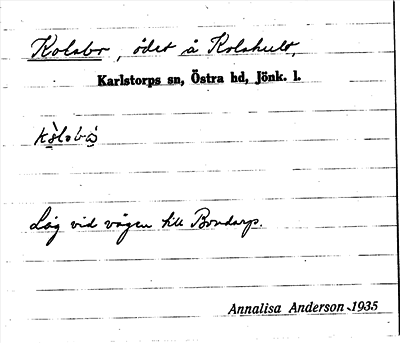 Kolsbo, ödet å Kolshult,
Karlstorps sn, Östra hd, Jönk. l.
Låg vid vägen till Bondarp.
Annalisa Anderson 1935